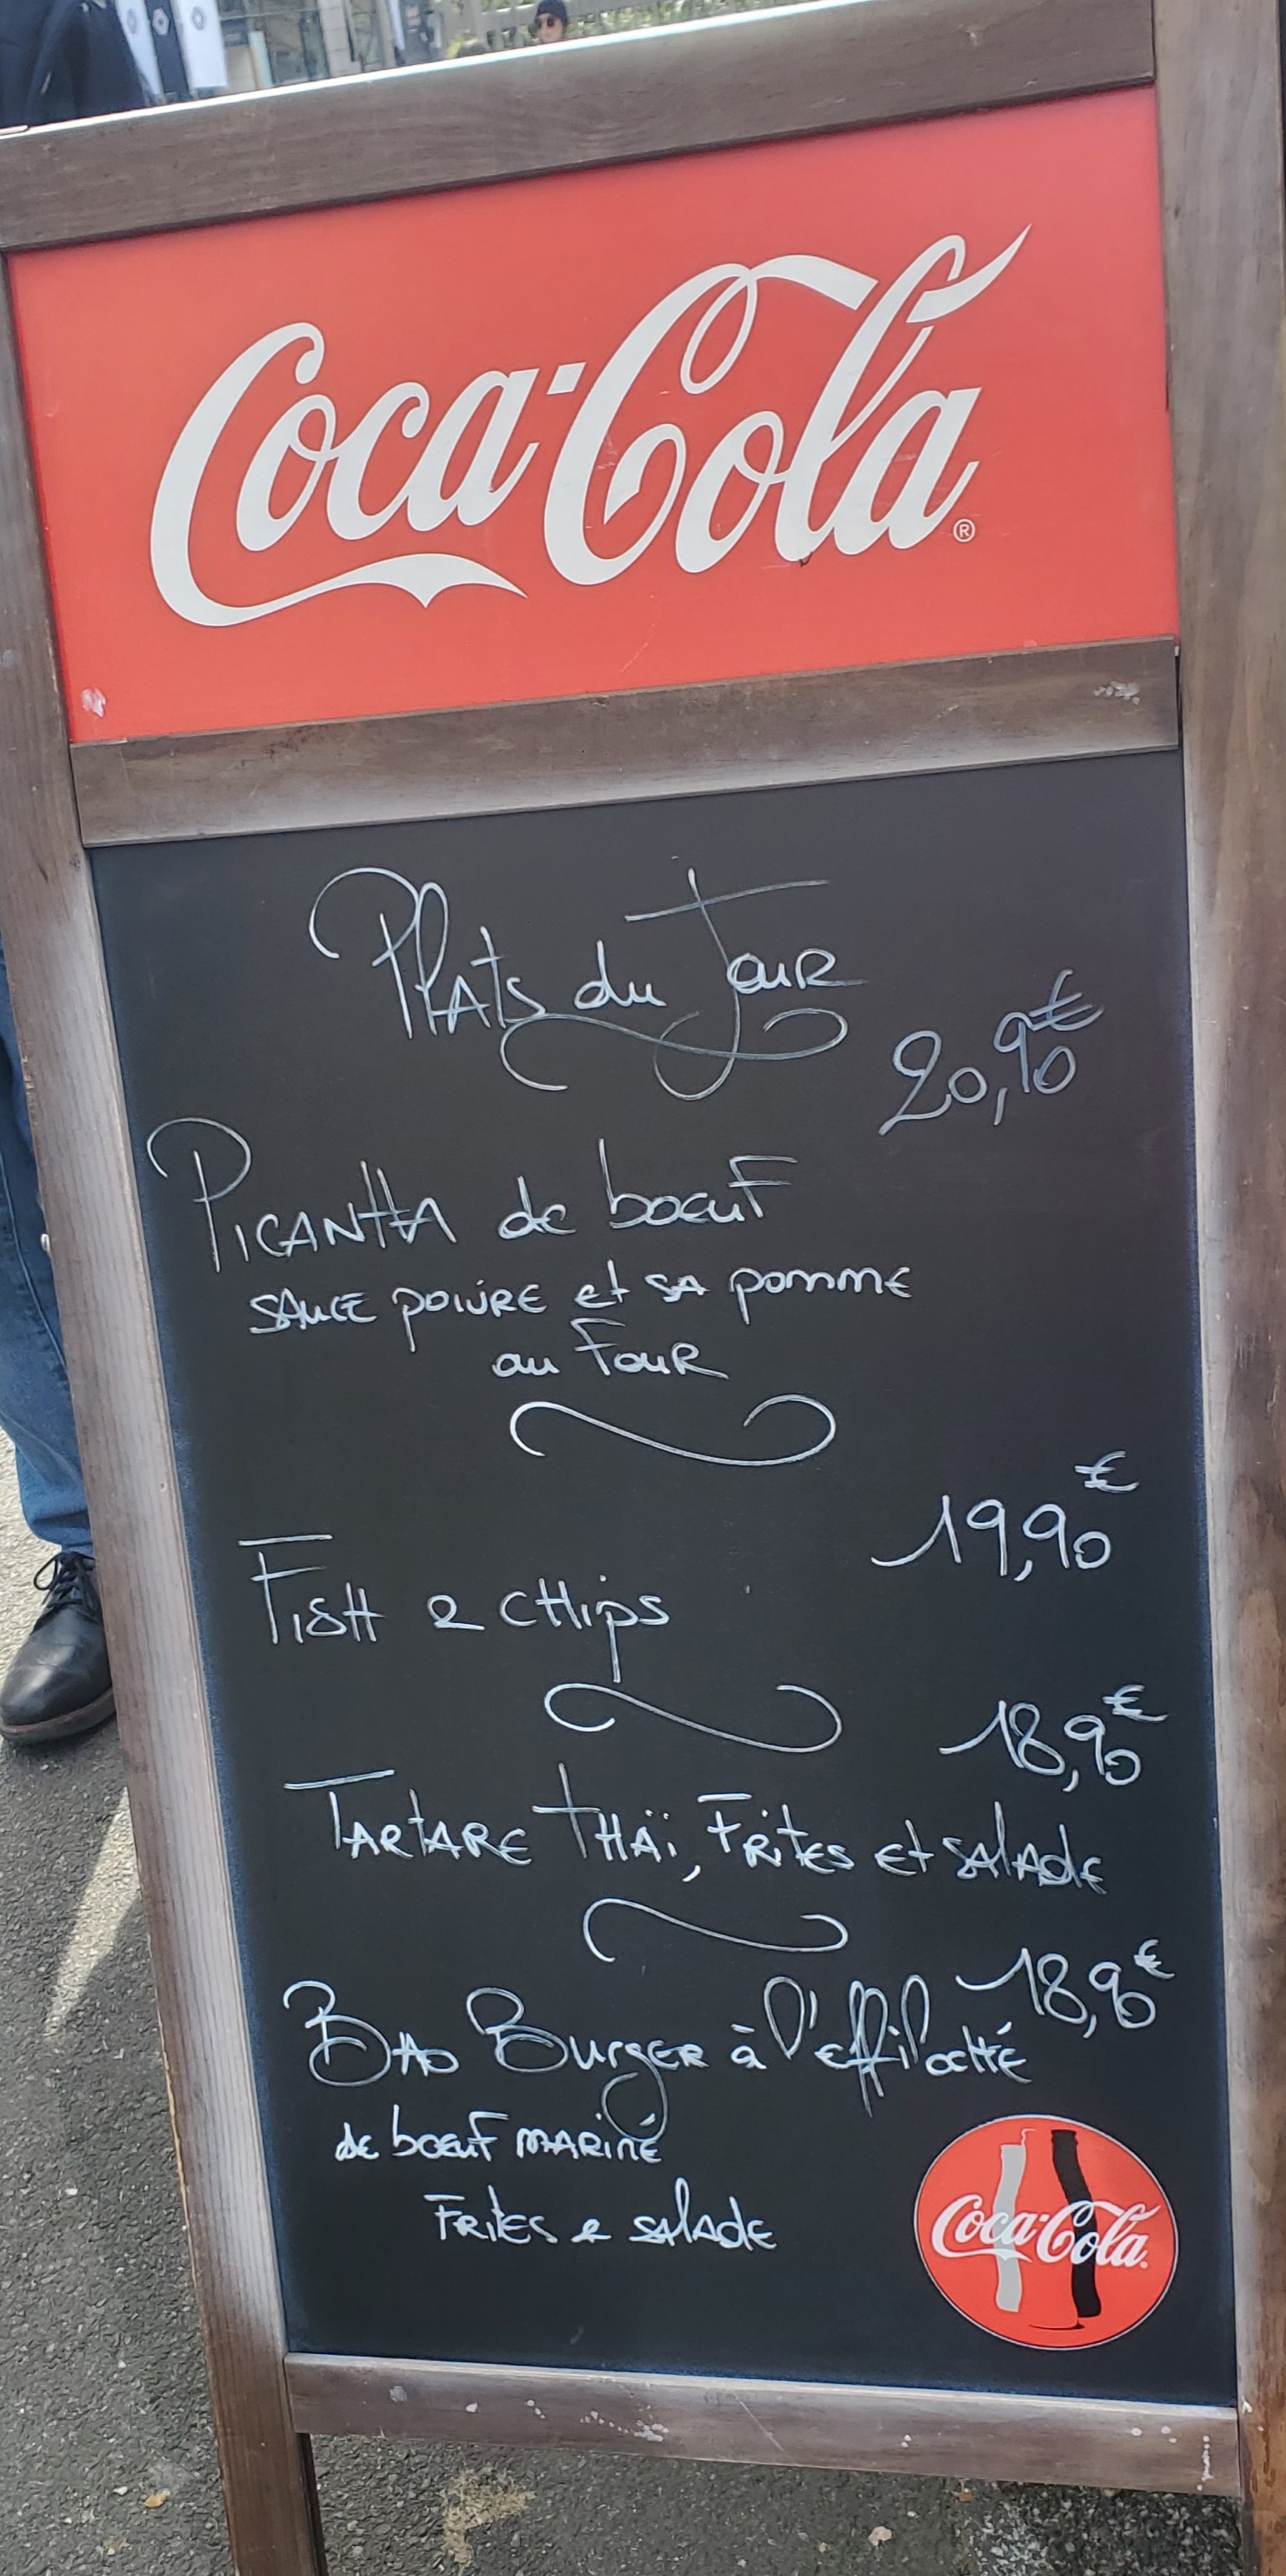 Coca-Cola ®
Plats du Jour
20,90€
Picantha de boeuf
sauce poivre et sa pomme
au four
19,90€
Fish & chips
18,90€
Tartare Thaï, Frites et salade
18,90€
Bao Burger à l'effiloché
de boeuf mariné
Frites & salade
Coca-Cola